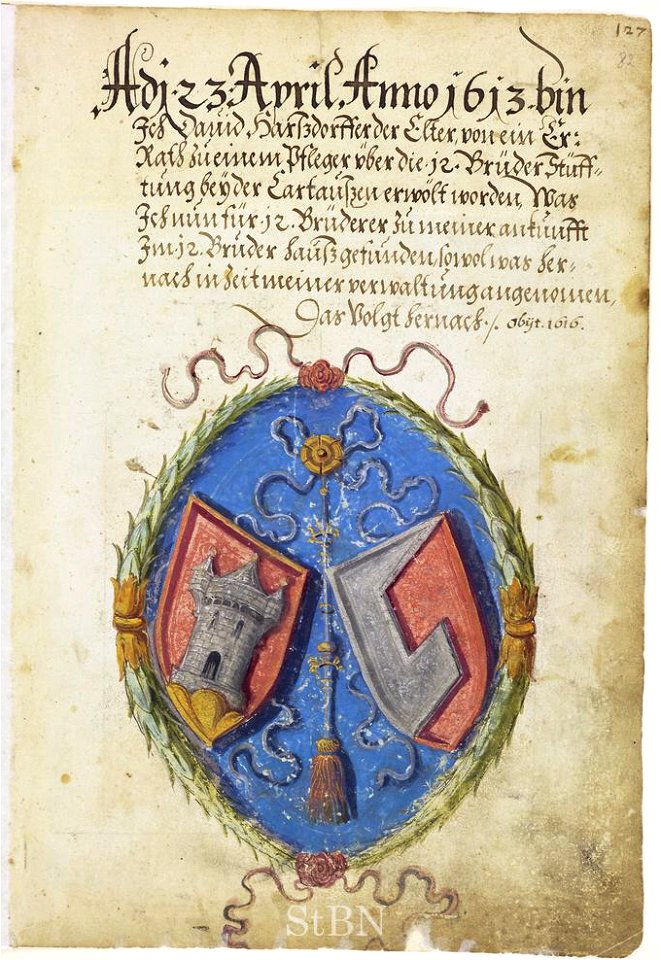 127
82
Adj. 23. April, Anno 1613. bin
Ich Dauid Harßdorffer der Elter, von ein Er:
Rath zu einem Pfleger über die .12. Brüder Stüff-
tung beÿder Cartaußen erwölt worden, Was
Ich nun für .12. Brüderer zu meiner ankunfft
Im .12. Brüder Hauß gefunden, sowol was her-
nach in Zeit meiner verwaltung angenomen,
Das Volgt hernach ./. obijt. 1616.
StBN